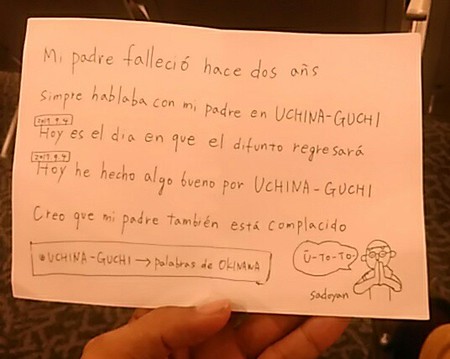 Mi padre falleció hace dos añs
simpre hablaba con mi padre en UCHINA-GUCHI
2017.9.4
Hoy es el dia en que el difunto regresará
2017.9.4
Hoy he hecho algo bueno por UCHINA-GUCHI
Creo que mi padre también está complacido
*UCHINA-GUCHI → palabras de OKINAWA
Ū-TO-TO
sadoyan